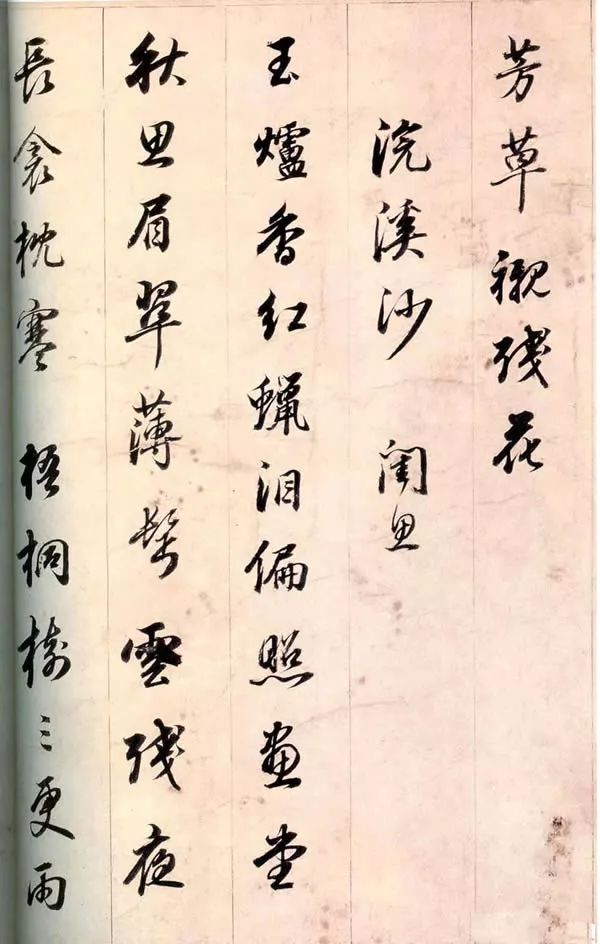 芳草襯残花
浣溪沙 閨思
玉爐香紅蠟泪偏照畫堂
秋思眉翠薄髩雲残夜
長衾枕寒 梧桐樹三更雨